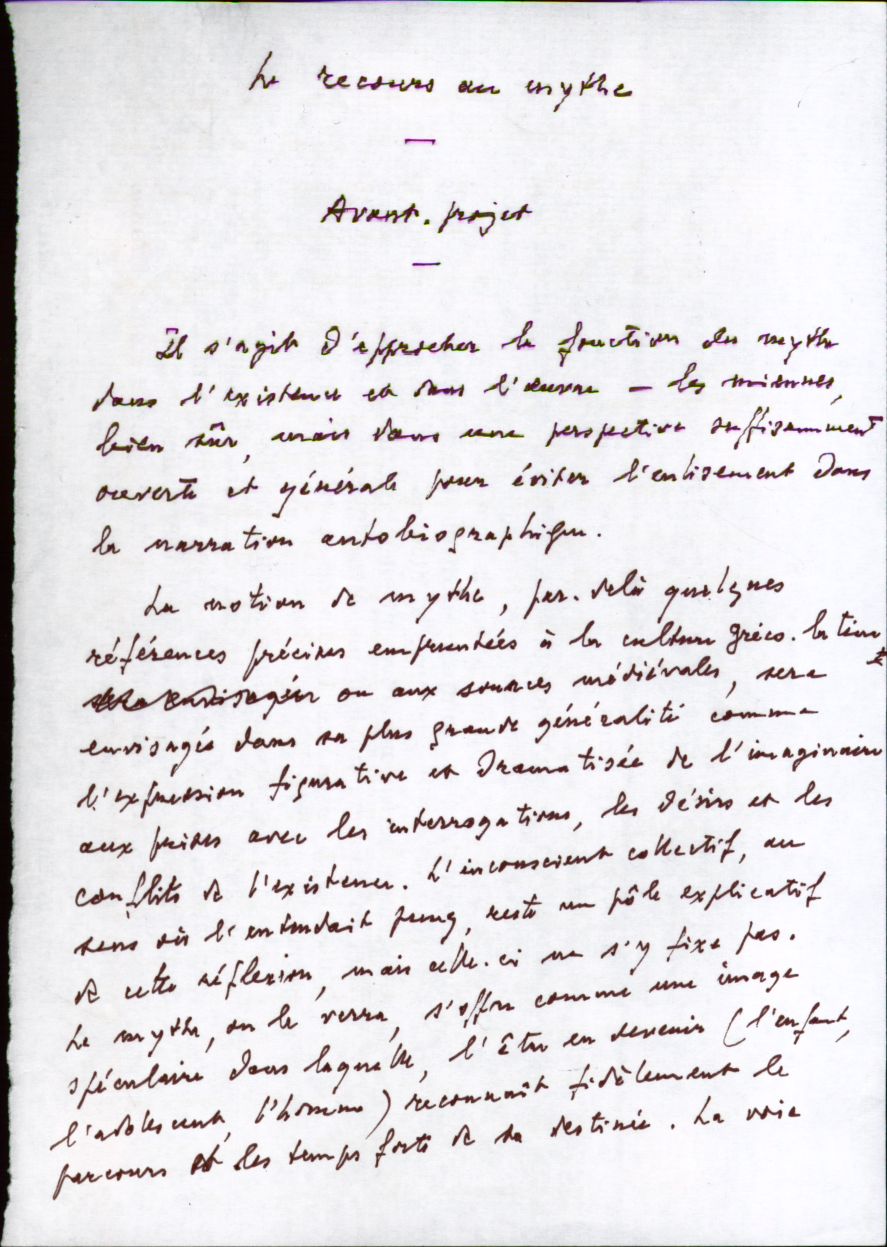 Le recours au mythe
—
Avant-projet
—
Il s'agit d'approcher la fonction du mythe
dans l'existence et dans l'œuvre — les miennes,
bien sûr, mais dans une perspective suffisamment
ouverte et générale pour éviter l'enlisement dans
la narration autobiographique.
La notion de mythe, par-delà quelques
références précises empruntées à la culture gréco-latine
ou aux sources médiévales, sera
envisagée dans sa plus grande généralité comme
l'expression figurative et dramatisée de l'imaginaire
aux prises avec les interrogations, les désirs et les
conflits de l'existence. L'inconscient collectif, au
sens où l'entendait Jung, reste un pôle explicatif
de cette réflexion, mais celle-ci ne s'y fixe pas.
Le mythe, on le verra, s'offre comme une image
spéculaire dans laquelle, l'être en devenir (l'enfant,
l'adolescent, l'homme) reconnaît fidèlement le
parcours et les temps forts de sa destinée. La voie